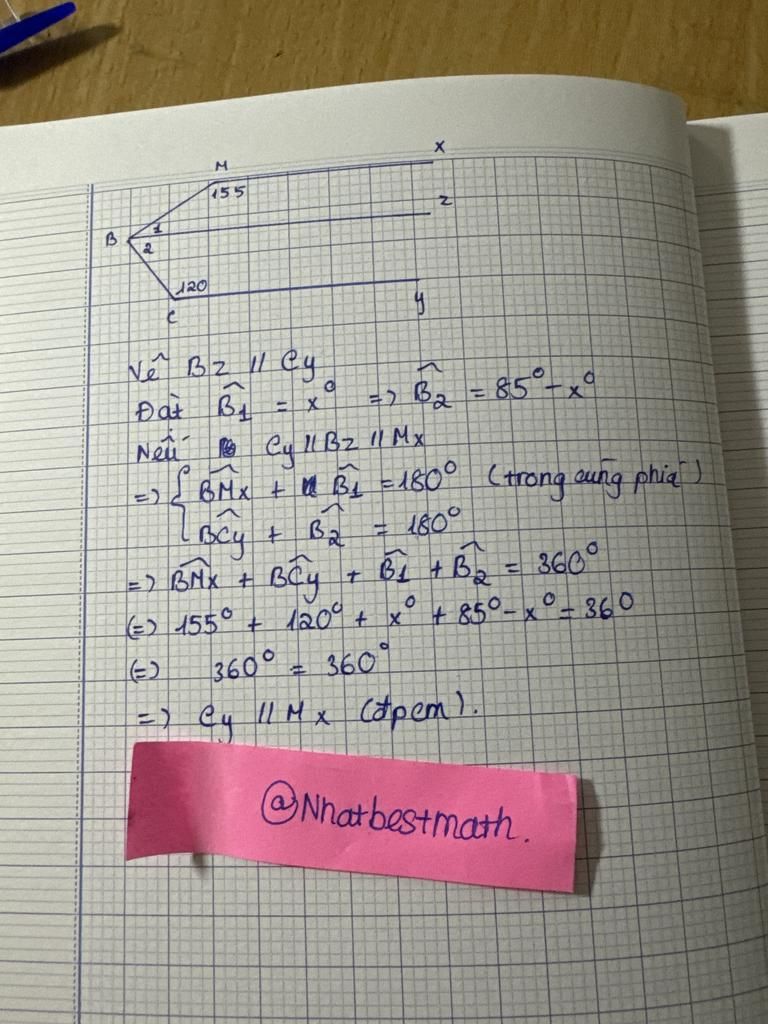 M
x
155
z
B
1
2
120
C
y
Vẽ Bz // Cy
Đặt B̂1 = x° => B̂2 = 85° - x°
Nếu Cy // Bz // Mx
=> { BM̂x + B̂1 = 180° (trong cùng phía)
BĈy + B̂2 = 180°
=> BM̂x + BĈy + B̂1 + B̂2 = 360°
(=) 155° + 120° + x° + 85° - x° = 360
(=) 360° = 360°
=> Cy // Mx (đpcm).
@Nhatbestmath.